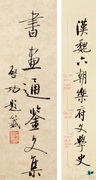 漢魏六朝樂府文學史
書畫通鑒文集
啓功題籤